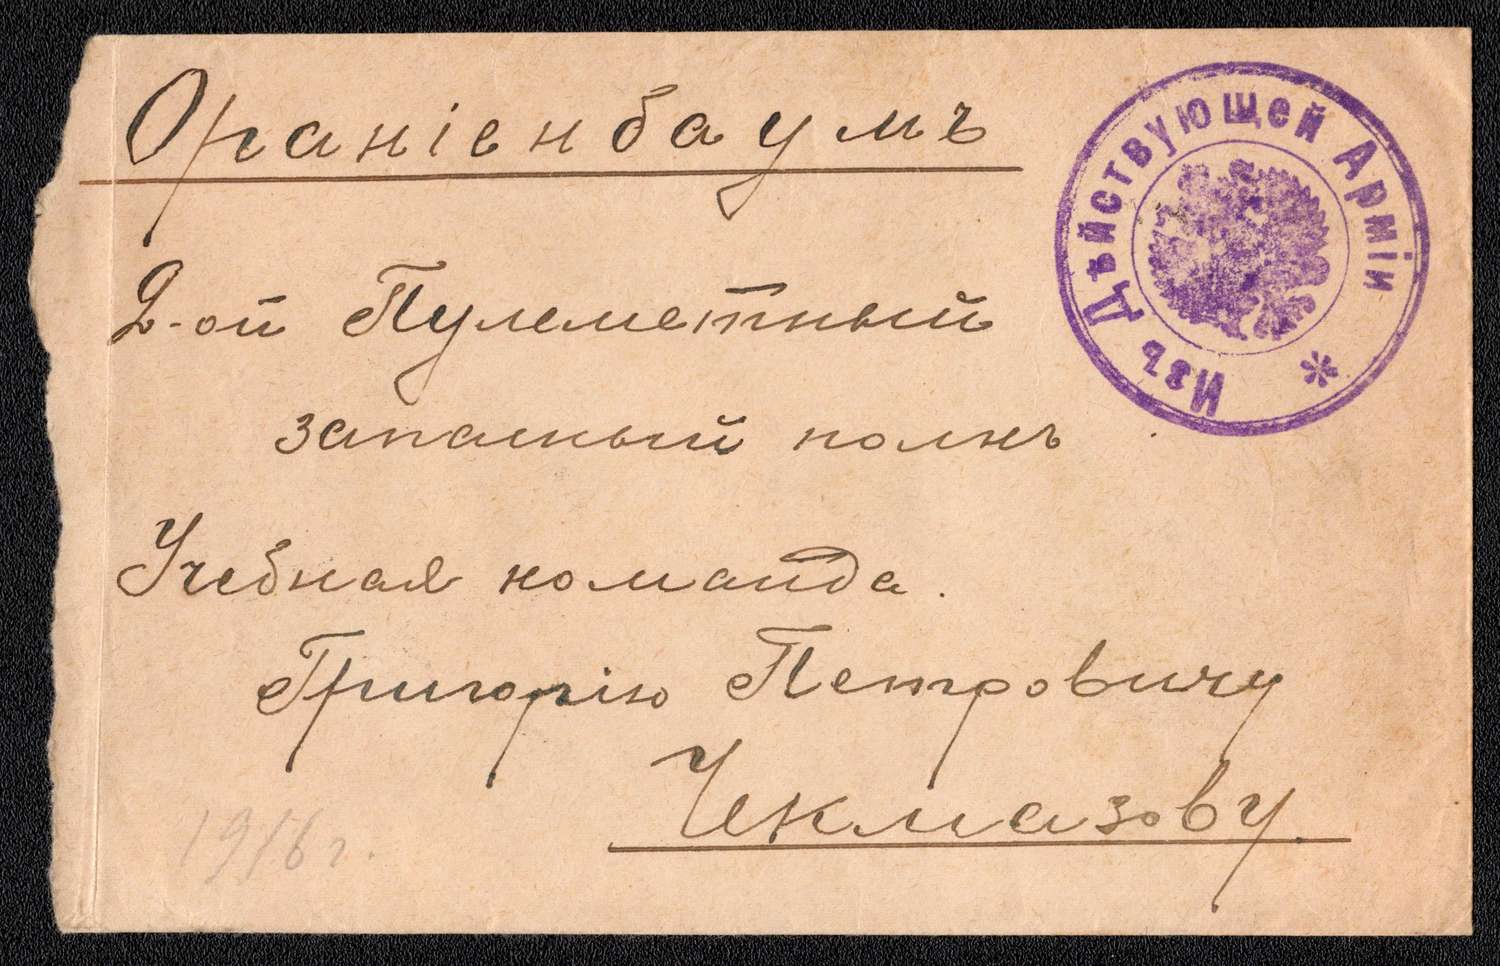 Ораніенбаумъ
Изъ Дѣйствующей Арміи *
2-ой Пулеметный
запасный полкъ
Учебная команда.
Григорію Петровичу
Чекмазову.
1916 г.